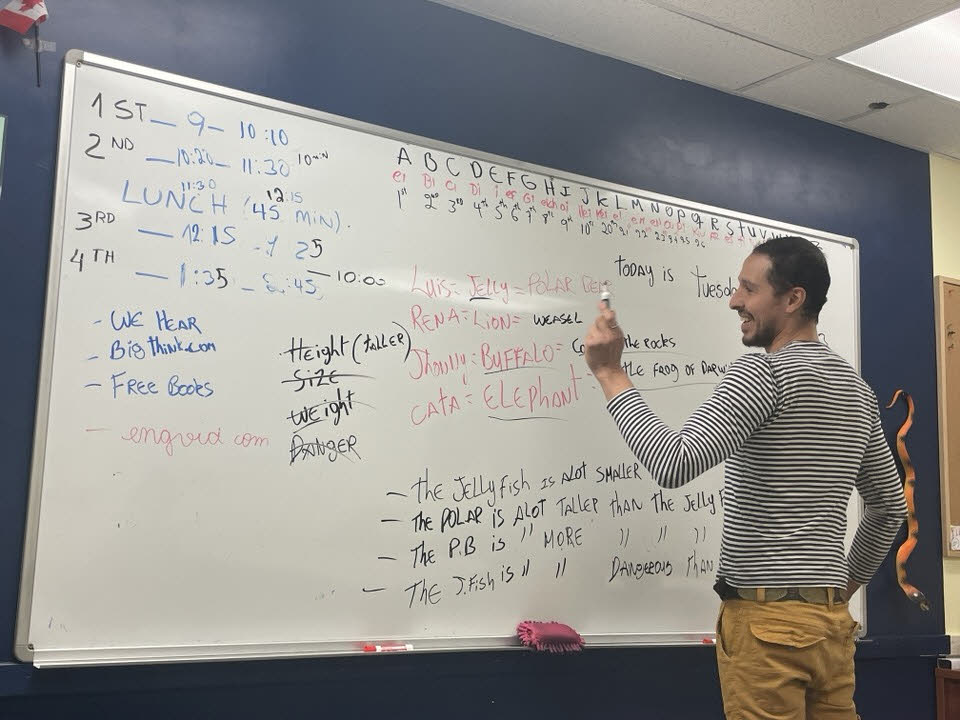 1ST — 9 - 10:10
2ND — 10:20 - 11:30 10 min
11:30 12:15
LUNCH (45 MIN).
3RD — 12:15 - 1 25
4TH — 1:35 - 2:45 — 10:00
- WE HEAR
- BigThink.com
- FREE BOOKS
- engvid com
HEIGHT (TALLER)
SIZE
WEIGHT
DANGER
A B C D E F G H I J K L M N O P Q R S T U V
1st 2nd 3rd 4th 5th 6th 7th 8th 9th 10th 20th 21 22
TODAY IS Tuesda
LUIS = JELLY = POLAR
RENA = LION = WEASEL
Jhonny = BUFFALO = the rocks
CATA = ELEPHANT - the FROG OF DARW
- THE JELLYFISH IS ALOT SMALLER
- THE POLAR IS ALOT TALLER THAN THE JELLY
- THE P.B IS " MORE " " "
- THE J.FISH IS " " DANGEROUS THAN